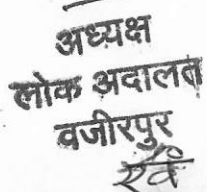 अध्यक्ष
लोक अदालत
वजीरपुर
एवं